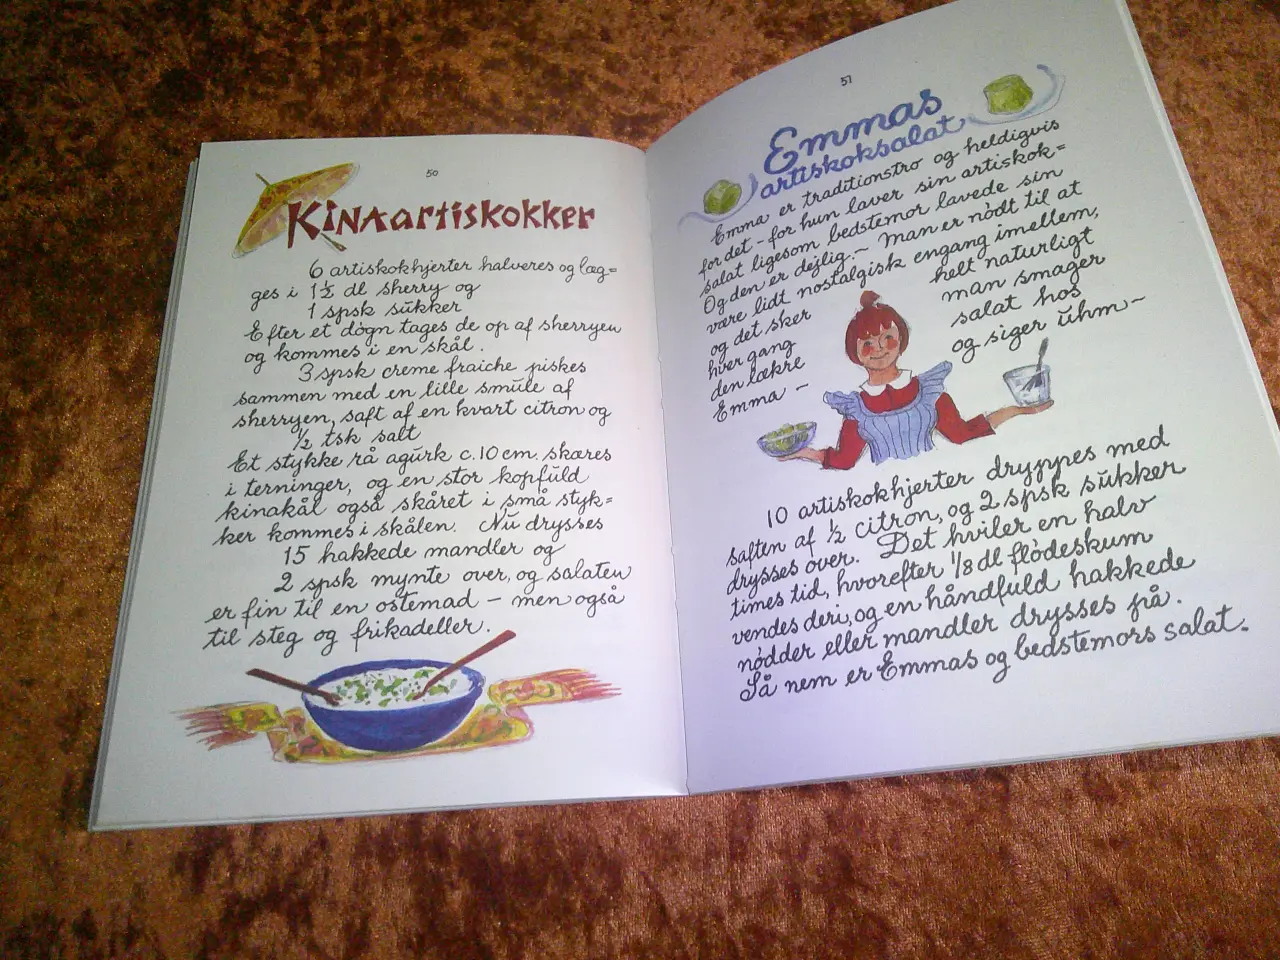 50
Kinaartiskokker
6 artiskokhjerter halveres og læg=
ges i 1½ dl sherry og
1 spsk sukker
Efter et døgn tages de op af sherryen
og kommes i en skål.
3 spsk creme fraiche piskes
sammen med en lille smule af
sherryen, saft af en kvart citron og
½ tsk salt
Et stykke rå agurk c. 10 cm. skæres
i terninger, og en stor kopfuld
kinakål også skåret i små styk=
ker kommes i skålen. Nu drysses
15 hakkede mandler og
2 spsk mynte over, og salaten
er fin til en ostemad – men også
til steg og frikadeller.
51
Emmas
artiskoksalat
Emma er traditionstro og heldigvis
for det – for hun laver sin artiskok=
salat ligesom bedstemor lavede sin
Og den er dejlig. – Man er nødt til at
være lidt nostalgisk engang imellem,
og det sker helt naturligt
hver gang man smager
den lækre salat hos
Emma – og siger uhm –
10 artiskokhjerter dryppes med
saften af ½ citron, og 2 spsk sukker
drysses over. Det hviler en halv
times tid, hvorefter 1/8 dl flødeskum
vendes deri, og en håndfuld hakkede
nødder eller mandler drysses på.
Så nem er Emmas og bedstemors salat.